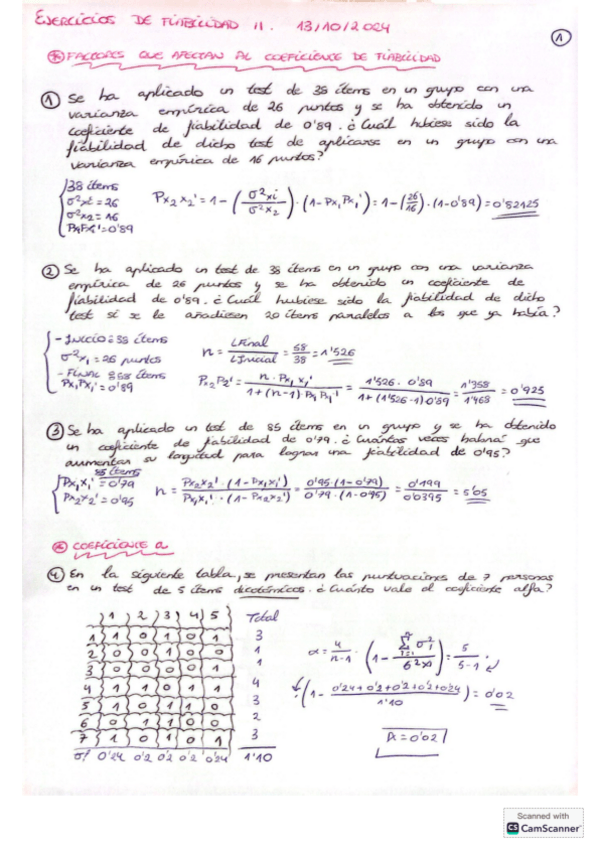 EJERCICIOS DE FIABILIDAD II. 13/10/2024
1
* FACTORES QUE AFECTAN AL COEFICIENTE DE FIABILIDAD
① Se ha aplicado un test de 38 ítems en un grupo con una
varianza empírica de 26 puntos y se ha obtenido un
coeficiente de fiabilidad de 0'89. ¿Cuál hubiese sido la
fiabilidad de dicho test de aplicarse en un grupo con una
varianza empírica de 16 puntos?
38 ítems
σ²x1 = 26
σ²x2 = 16
Px1x1' = 0'89
Px2x2' = 1 - (σ²x1 / σ²x2) · (1 - Px1Px1') = 1 - (26/16) · (1 - 0'89) = 0'82125
② Se ha aplicado un test de 38 ítems en un grupo con una varianza
empírica de 26 puntos y se ha obtenido un coeficiente de
fiabilidad de 0'89. ¿Cuál hubiese sido la fiabilidad de dicho
test si se le añadiesen 20 ítems paralelos a los que ya había?
- Inicio = 38 ítems
σ²x1 = 26 puntos
- Final = 58 ítems
Px1Px1' = 0'89
n = LFinal / LInicial = 58/38 = 1'526
Px2P2' = n · Px1x1' / 1 + (n-1) · Px1Px1' = 1'526 · 0'89 / 1 + (1'526 - 1) 0'89 = 1'358 / 1'468 = 0'925
③ Se ha aplicado un test de 85 ítems en un grupo y se ha obtenido
un coeficiente de fiabilidad de 0'79. ¿Cuántas veces habrá que
aumentar su longitud para lograr una fiabilidad de 0'95?
85 ítems
Px1x1' = 0'79
Px2x2' = 0'95
n = Px2x2' · (1 - Px1x1') / Px1x1' · (1 - Px2x2') = 0'95 · (1 - 0'79) / 0'79 · (1 - 0'95) = 0'199 / 0'0395 = 5'05
* COEFICIENTE α
④ En la siguiente tabla, se presentan las puntuaciones de 7 personas
en un test de 5 ítems dicotómicos. ¿Cuánto vale el coeficiente alfa?
1 2 3 4 5 Total
1 1 0 1 0 1 3
2 0 0 1 0 0 1
3 0 0 0 0 1 1
4 1 1 0 1 1 4
5 1 0 1 1 0 3
6 0 1 1 0 0 2
7 1 0 1 0 1 3
σ² 0'24 0'2 0'2 0'2 0'24 1'10
α = n / n-1 · (1 - Σ σ²i / σ²x) = 5 / 5-1 ·
· (1 - 0'24 + 0'2 + 0'2 + 0'2 + 0'24 / 1'10) = 0'02
α = 0'02
Scanned with
CS CamScanner